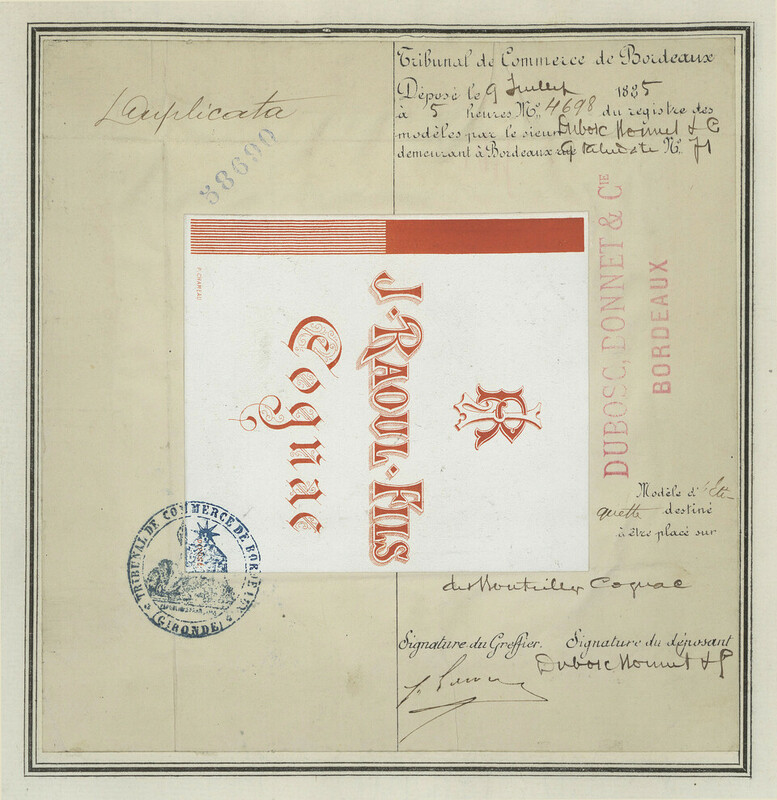 Duplicata
38690
Tribunal de Commerce de Bordeaux
Déposé le 9 Juillet 1885
à 5 heures Nº 4698 du registre des
modèles par le sieur Dubosc Donnet & Cº
demeurant à Bordeaux rue Nº 71
DUBOSC, DONNET & CIE
BORDEAUX
JR
J. RAOUL. FILS
Cognac
TRIBUNAL DE COMMERCE DE BORDEAUX
(GIRONDE)
Modèle d'Eti-
quette destiné
à être placé sur
des Bouteilles Cognac
Signature du Greffier. Signature du déposant
Dubosc Donnet & Cº